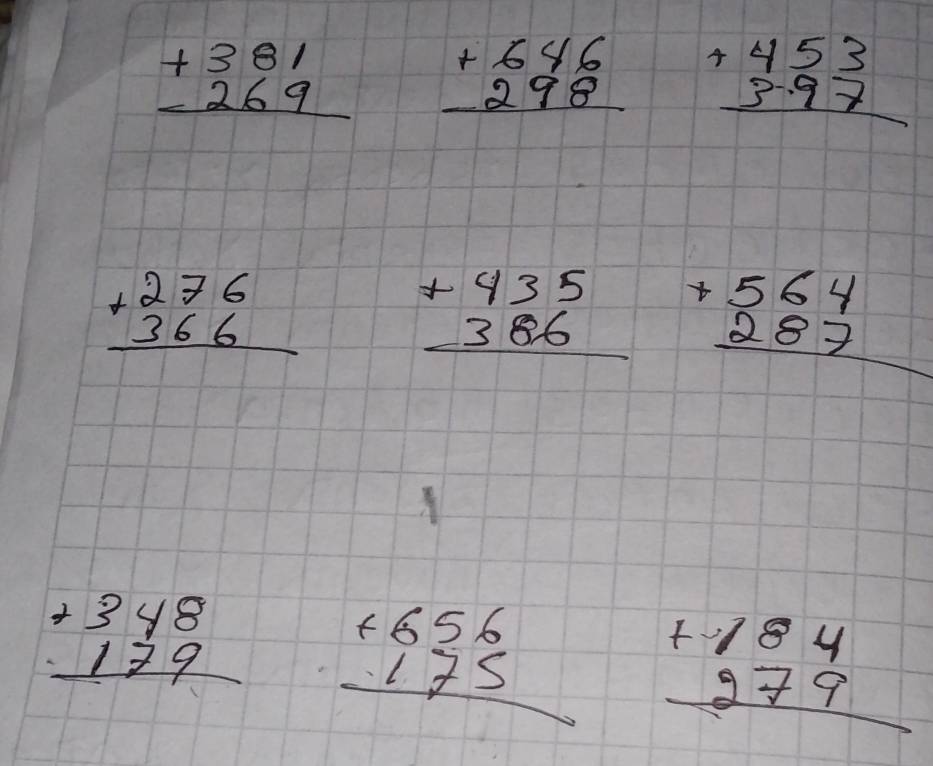 +381 +646 +453
269 298 397
+276 +435 +564
366 386 287
+348 +656 +184
179 175 279